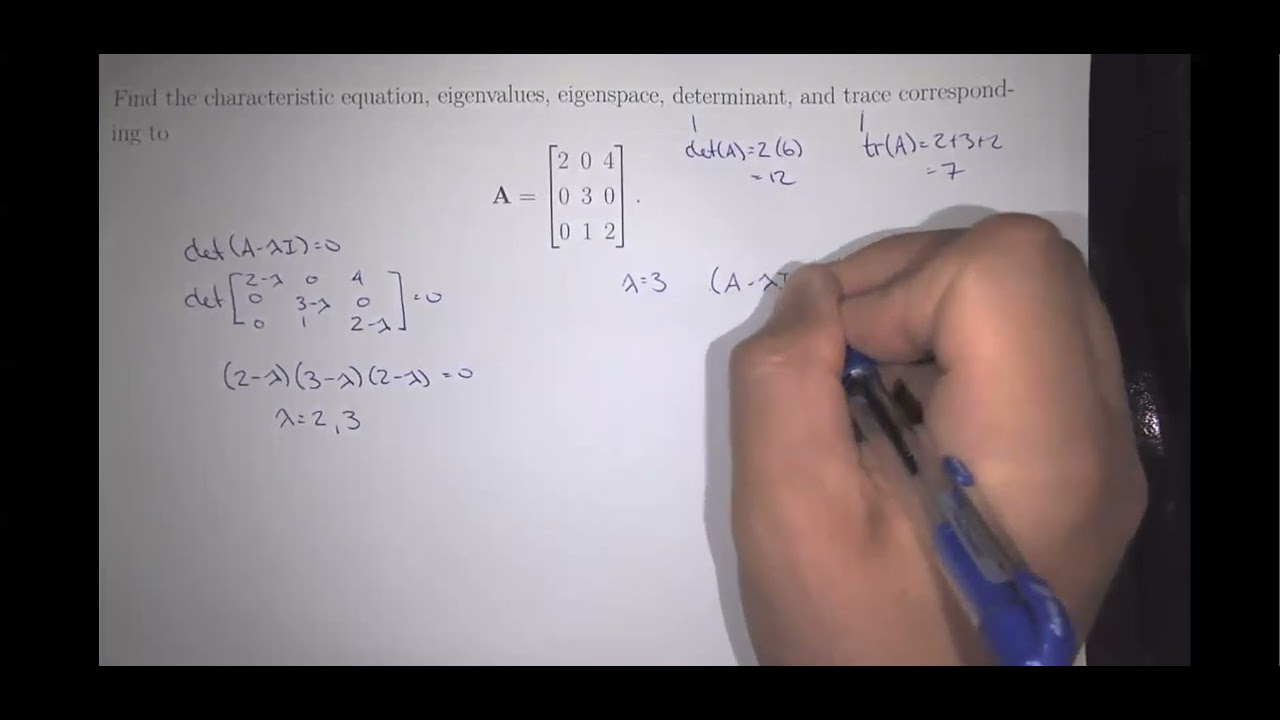 Find the characteristic equation, eigenvalues, eigenspace, determinant, and trace correspond-
ing to
A = [2 0 4
0 3 0
0 1 2] .
det(A)=2(6)
=12
tr(A)=2+3+2
=7
det(A-λI)=0
det[2-λ 0 4
0 3-λ 0
0 1 2-λ]=0
(2-λ)(3-λ)(2-λ)=0
λ=2,3
λ=3 (A-λI